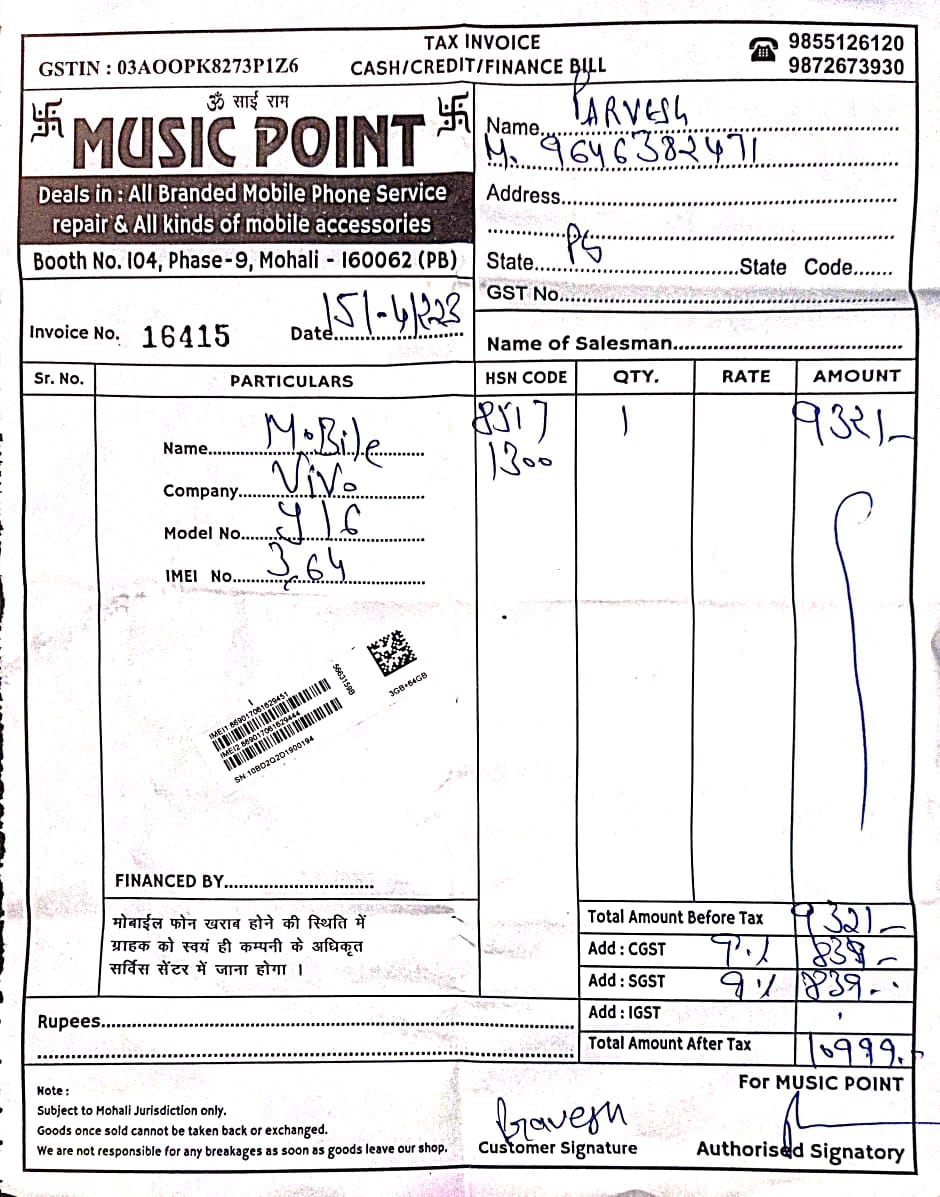 TAX INVOICE
GSTIN : 03AOOPK8273P1Z6 CASH/CREDIT/FINANCE BILL
9855126120
9872673930
ॐ साई राम
MUSIC POINT
Deals in : All Branded Mobile Phone Service
repair & All kinds of mobile accessories
Booth No. 104, Phase-9, Mohali - 160062 (PB)
Invoice No. 16415 Date 15/-4/223
Name PARVESH
M. 9646382471
Address
State PB State Code
GST No.
Name of Salesman
Sr. No. PARTICULARS HSN CODE QTY. RATE AMOUNT
Name MoBile 8517 1 9321/-
1300
Company ViVo
Model No. Y16
IMEI No. 3,64
IMEI1 869017061629451
IMEI2 869017061629444
SN 10BD2Q2D1900194
5663159B
3GB+64GB
FINANCED BY
मोबाईल फोन खराब होने की स्थिति में
ग्राहक को स्वयं ही कम्पनी के अधिकृत
सर्विस सेंटर में जाना होगा ।
Total Amount Before Tax 9321/-
Add : CGST 9% 839-
Add : SGST 9% 839-
Add : IGST
Total Amount After Tax 10999.-
Rupees
For MUSIC POINT
Note :
Subject to Mohali Jurisdiction only.
Goods once sold cannot be taken back or exchanged.
We are not responsible for any breakages as soon as goods leave our shop.
Pravesh
Customer Signature
Authorised Signatory